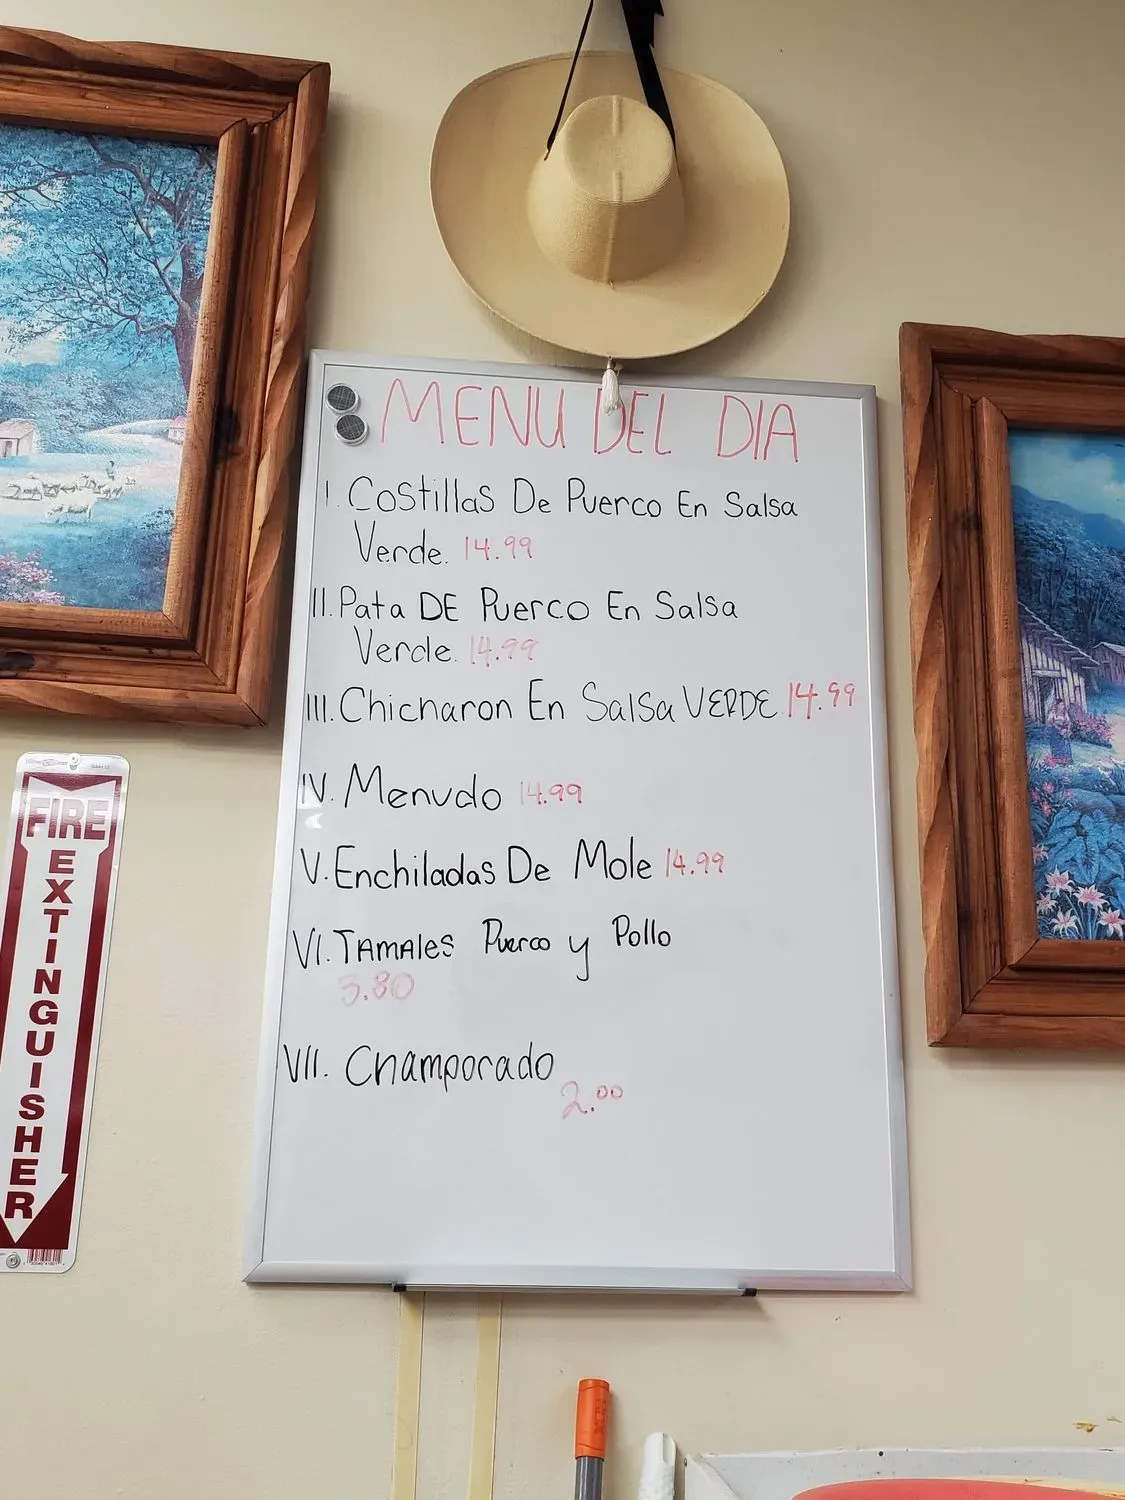 MENU DEL DIA
I. Costillas De Puerco En Salsa
Verde. 14.99
II. Pata DE Puerco En Salsa
Verde. 14.99
III. Chicharon En Salsa VERDE 14.99
IV. Menudo 14.99
V. Enchiladas De Mole 14.99
VI. TAMALES Puerco y Pollo
3.80
VII. Champorado
2.00
FIRE
EXTINGUISHER